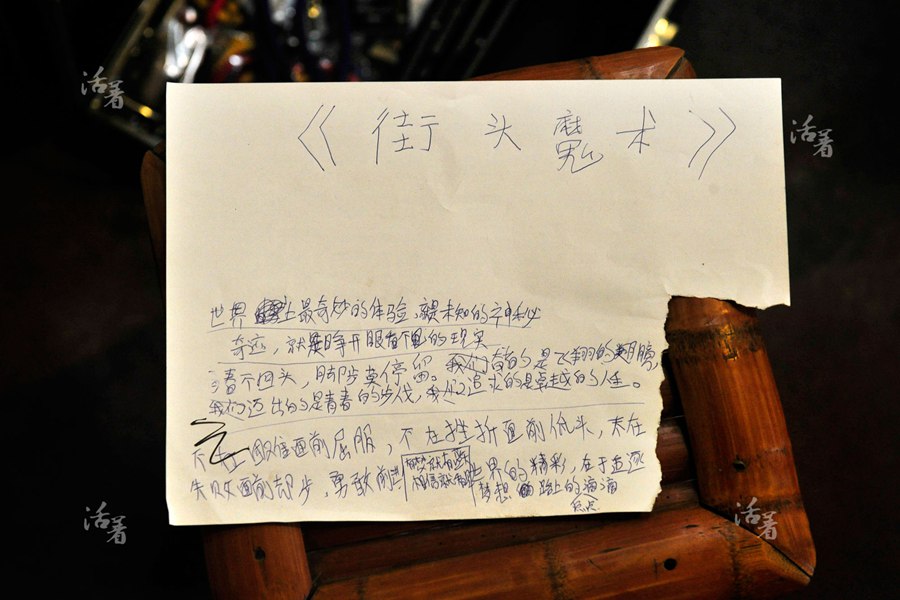 活着
活着
《街头魔术》
世界上最奇妙的体验,就是未知的神秘
奇迹,就是睁开眼看见的现实
不回头,脚步莫停留。我们有的是飞翔的翅膀,
我们迈出的是青春的步伐,我们追求的是卓越的人生。
不在面前屈服,不在挫折面前低头,不在
失败面前却步,勇敢前进 世界的精彩,在于追逐
梦想 路上的滴滴
点点
活着
活着